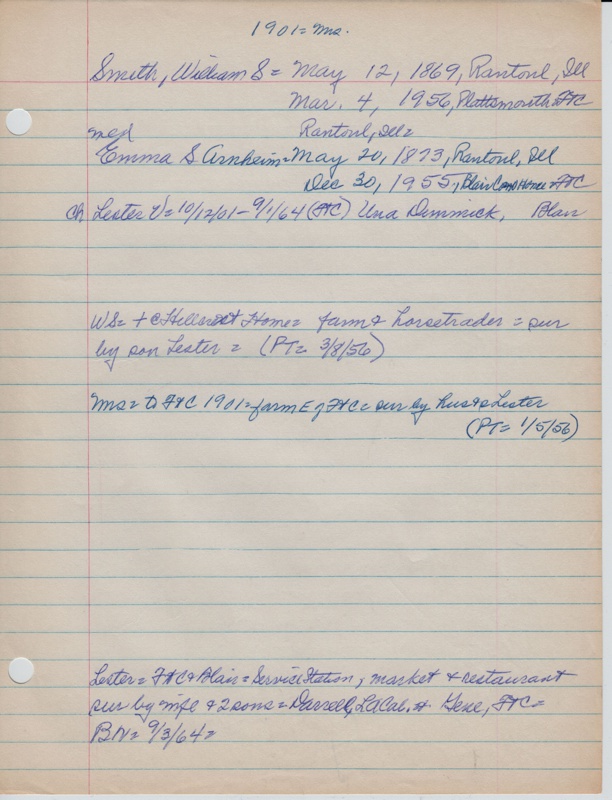 1901 = Ms.
Smith, William S = May 12, 1869, Rantoul, Ill
Mar. 4, 1956, Plattsmouth = FtC
med Rantoul, Ill =
Emma S Arnheim = May 20, 1873, Rantoul, Ill
Dec 30, 1955, Blair Home = FtC
Ch Lester V = 10/12/01 - 9/1/64 (FtC) Una Dimmick, Blair
WS = + C Hillcrest Home = farm & horsetrader = sur
by son Lester = (PT = 3/8/56)
Ms = to FtC 1901 = farm E of FtC = sur by hus & Lester
(PT = 1/5/56)
Lester = FtC & Blair = Service Station, market & restaurant
sur by wife & 2 sons = Darrell, LA Cal. & Gene, FtC =
BN = 9/3/64 =